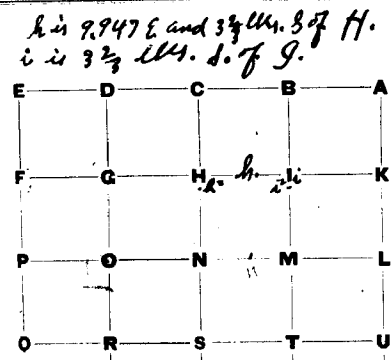 h is 9.947 E and 3⅔ lks. S of H.
i is 3 2/3 lks. S. of I.
E D C B A
F G H h. I K
h i i
P Q N M L
O R S T U